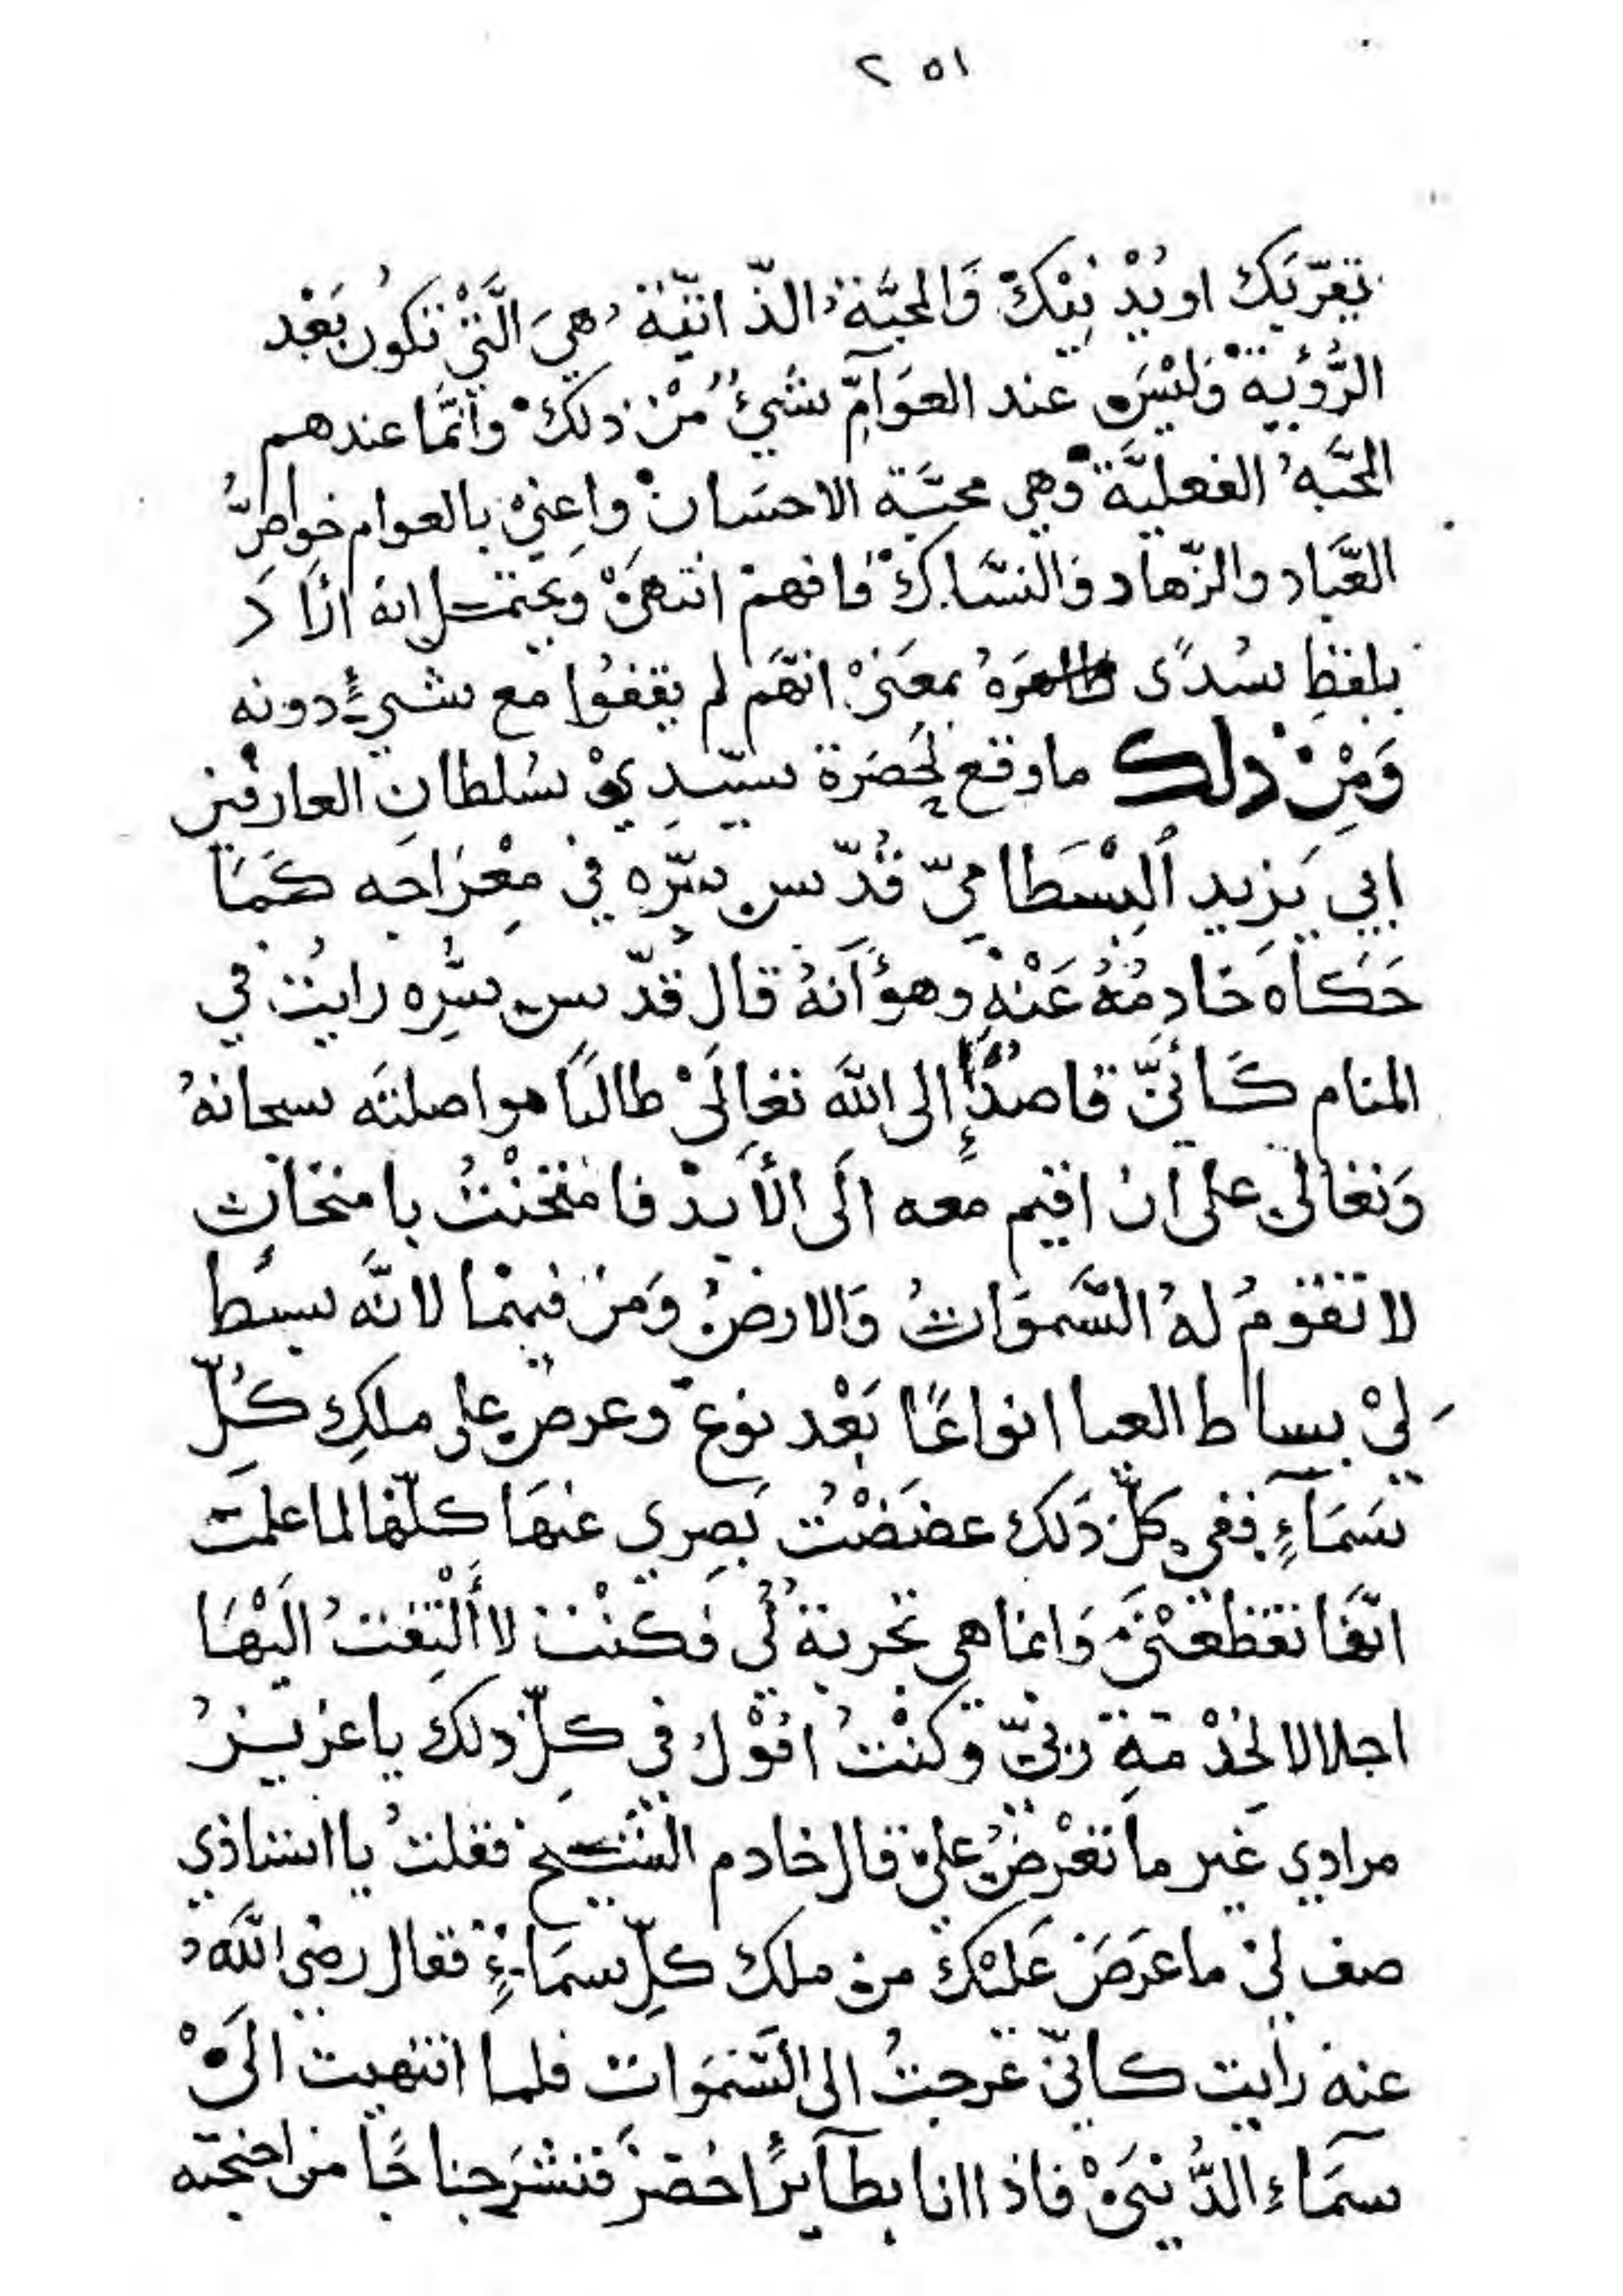 ٢٥١
تقرّبك او يُدْنِيْك وَالمحبَّةُ الذّاتيّة هيَ الَّتيْ تكونُ بَعْد
الرُّؤْية وَليْسَ عند العوَآمِّ شَيْءٌ مْن ذلكَ وانَّما عندهم
المحَّبهُ الفعليَّة وهي محبَّة الاحسَان واعِنيْ بالعوام خواصُّ
العّباد والزّهاد وَالنسَّاك فافهمْ انتهىْ وَيحتمل انهُ ارَاد
بلفظِ سُدًى ظاهرَهُ بمعَنىْ انهَّم لم يقفوُا مع شيءٍ دونه
وَمِنْ ذلك ما وقع لحَِضرَة سيّدِيْ سُلطانِ العارفين
ابي يَزيد اْلبِسْطاميّ قُدّس سرّه في مِعْرَاجه كمَا
حَكاهَ خَادِمُهُ عَنْهِ وهوَ اَنهُ قال قدّس سّرِه رايتُ في
المنام كَانيّ قاصدًا إلى اللهَ تعالَىْ طالبًا مواصلته سبحانهُ
وَتعالى على ان اقيم معه الَى الأَبدْ فامتُحنْتُ بامتحاَن
لا تقوُمُ لهُ السَّموَاتُ وَالارضُ وَمَن فيهمْا لانَّه بسَط
ليْ بساط العبا انواعًا بَعْد نوع وعرض على ملكِ كُلِّ
سَمَآءٍ ففي كلّ ذَلك غضضْتُ بَصِري عنهَا كلّها لما علمت
انّها تقطعنىْ وَانما هي تجربة لي فكنْت لا أَلْتِفتُ الَيْهَا
اجلالا لخِدْمَةِ ربيّ وكنْتُ اقوْلُ في كلِّ ذلك يا عزيزُ
مرادي غير ما تعْرضُ علىّ قال خادم الشيخ فقلتُ يا استاذي
صف ليْ ما عَرَضَ عَليْك من ملك كلِّ سمَاءٍ فقال رضي اللهَُ
عنه رايت كانيّ عرجتُ الى السَّموَات فلما انتهيت الَىْ
سمَآءِ الدُّنيَىْ فاذا انا بطَآيرٍ اخضرَ فنشَر جناحًا من اجنحته